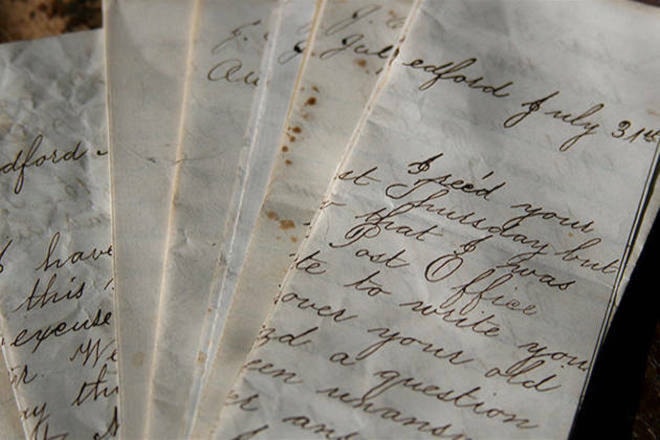 dford
have
this
excuse
We
J.
Au
J.
Jul
edford July 31st
I rec'd your
st Thursday but
that I was
Post Office
te to write you
over your old
zd a question
een unansw
er an